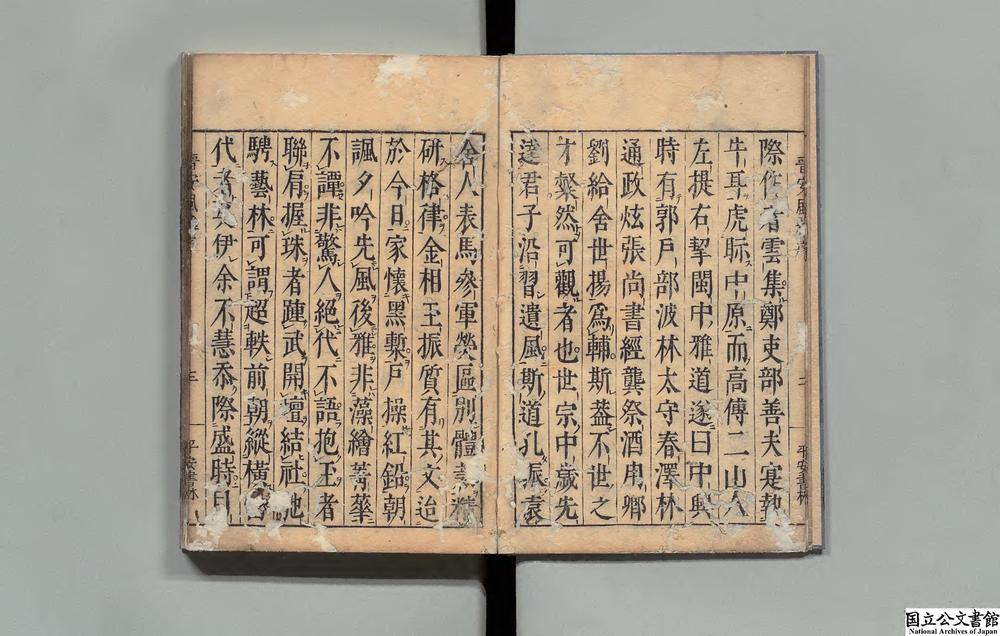 際作者雲集鄭吏部善夫寔執
牛耳虎眎中原而高傅二山人
左提右挈閩中雅道遂曰中興
時有郭戶部波林太守春澤林
通政炫張尚書經龔祭酒用卿
劉給舍世揚爲輔斯蓋不世之
才粲然可觀者也世宗中歲先
達君子沿習遺風斯道孔振袁
舍人表馬參軍熒區別體裁精
研格律金相玉振質有其文迨
於今日家懷黑槧戶操紅鉛朝
諷夕吟先風後雅非藻繪菁華
不譚非驚人絕代不語抱玉者
聯肩握珠者踵武開壇結社馳
騁藝林可謂超軼前朝縱橫
代者矣伊余不慧忝際盛時目
国立公文書館
National Archives of Japan